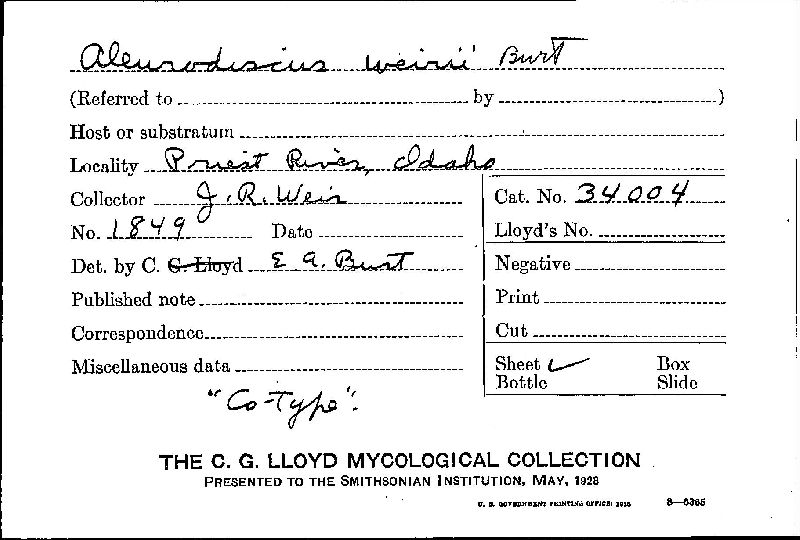 Aleurodiscus weirii Burt
(Referred to by )
Host or substratum
Locality Priest River, Idaho
Collector J. R. Weir
No. 1849 Date
Det. by C. G. Lloyd E A. Burt
Published note
Correspondence
Miscellaneous data
"Co-Type".
Cat. No. 34004
Lloyd's No.
Negative
Print
Cut
Sheet ✓ Box
Bottle Slide
THE C. G. LLOYD MYCOLOGICAL COLLECTION
PRESENTED TO THE SMITHSONIAN INSTITUTION, MAY, 1928
U. S. GOVERNMENT PRINTING OFFICE: